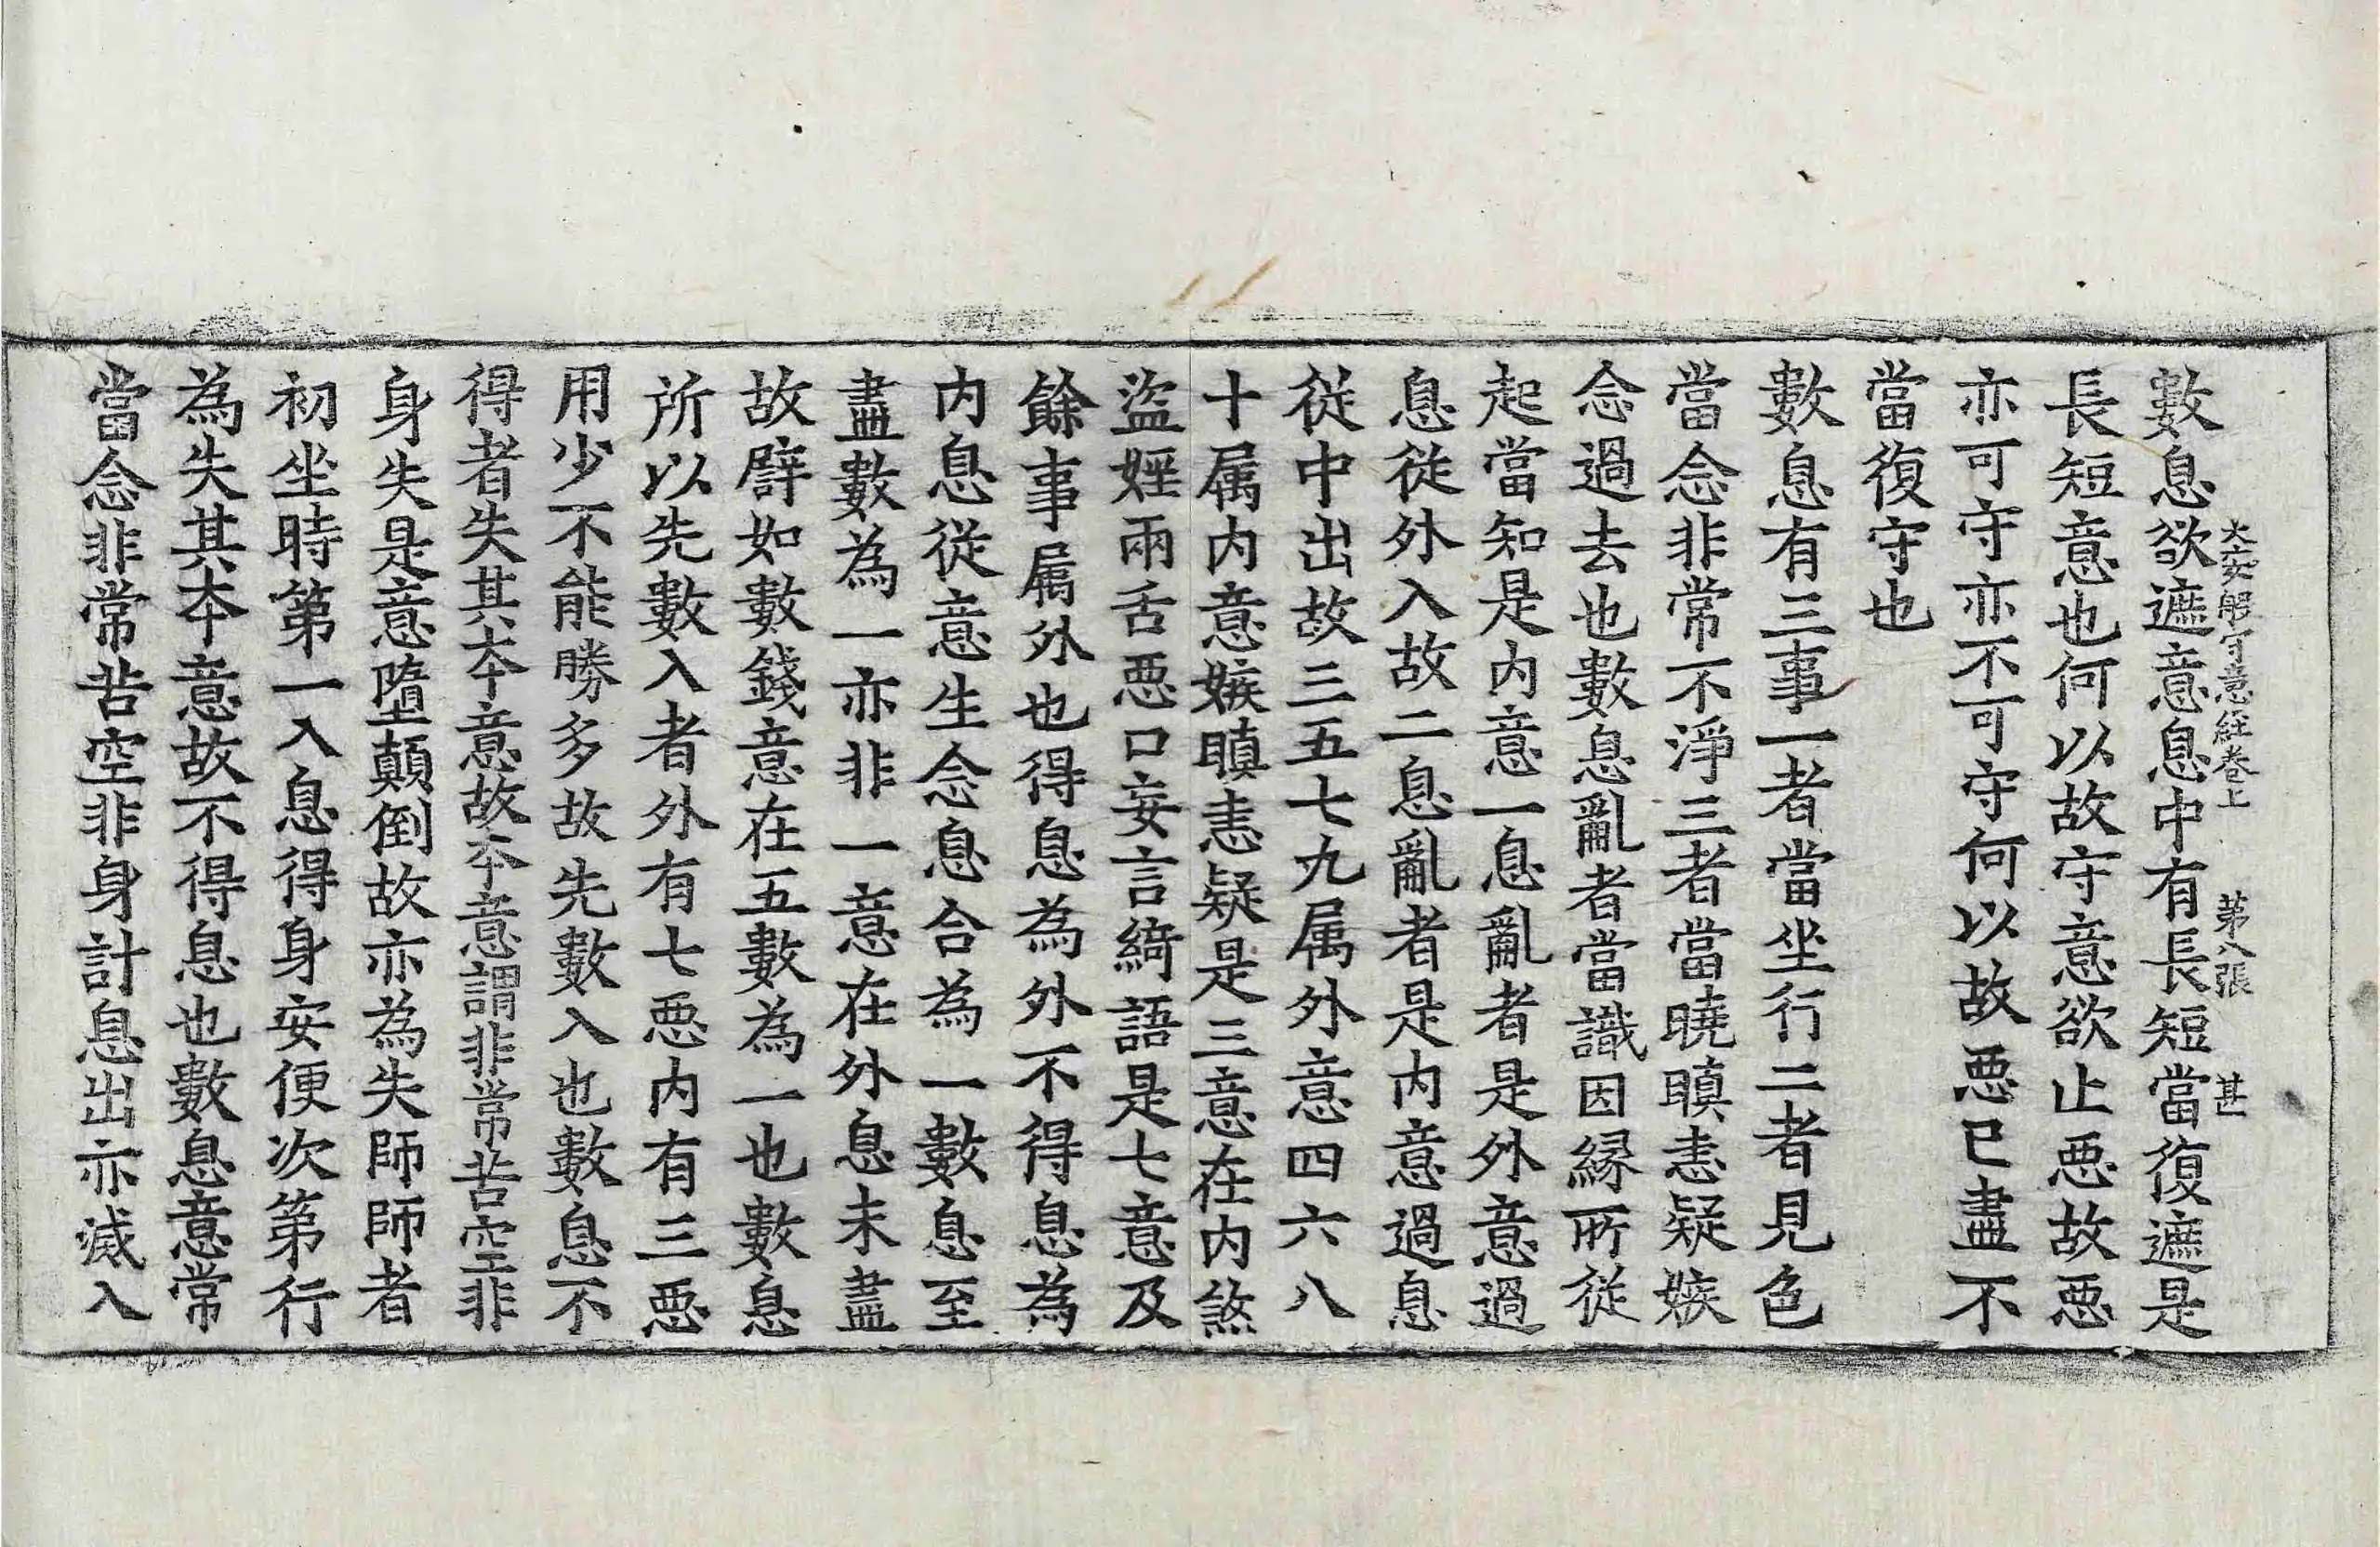 數息欲遮意息中有長短當復遮是
大安般守意經卷上 第八張 甚
長短意也何以故守意欲止惡故惡
亦可守亦不可守何以故惡已盡不
當復守也
數息有三事一者當坐行二者見色
當念非常不淨三者當曉瞋恚疑嫉
念過去也數息亂者當識因緣所從
起當知是內意一息亂者是外意過
息從外入故二息亂者是內意過息
從中出故三五七九属外意四六八
十属内意嫉瞋恚疑是三意在内煞
盜婬兩舌惡口妄言綺語是七意及
餘事属外也得息為外不得息為
内息從意生念息合為一數息至
盡數為一亦非一意在外息未盡
故譬如數錢意在五數為一也數息
所以先數入者外有七惡内有三惡
用少不能勝多故先數入也數息不
得者失其本意故本意謂非常苦空非
身失是意墮顛倒故亦為失師師者
初坐時第一入息得身安便次第行
為失其本意故不得息也數息意常
當念非常苦空非身計息出亦滅入